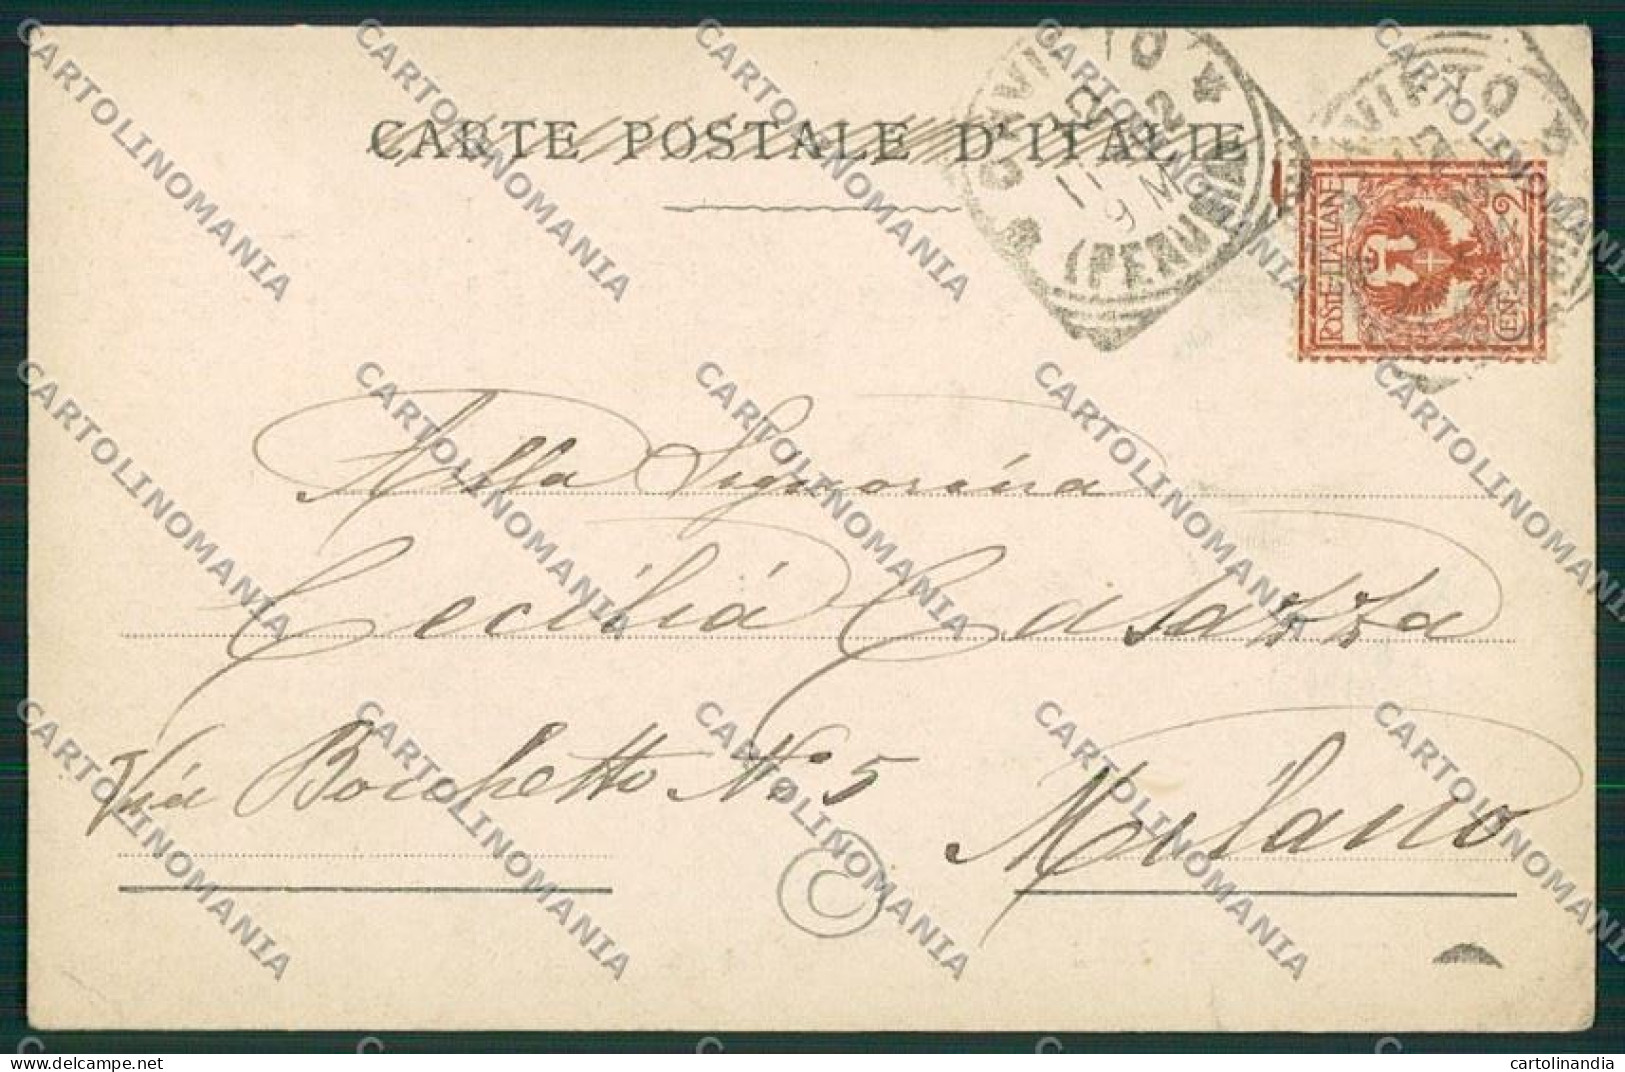 CARTE POSTALE D'ITALIE
ORVIETO
(PERUGIA)
POSTE ITALIANE
CENT. 2
Alla Signorina
Cecilia Casazza
Via Bocchetto No 5
Milano
C
CARTOLINOMANIA
cartolinandia
delcampe.net